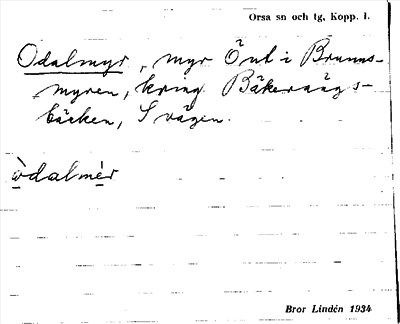 Orsa sn och tg, Kopp. l.
Odalmyr, myr Önt i Brunns-
myren, kring Bäkerängs-
bäcken, S vägen.
òdalmér
Bror Lindén 1934